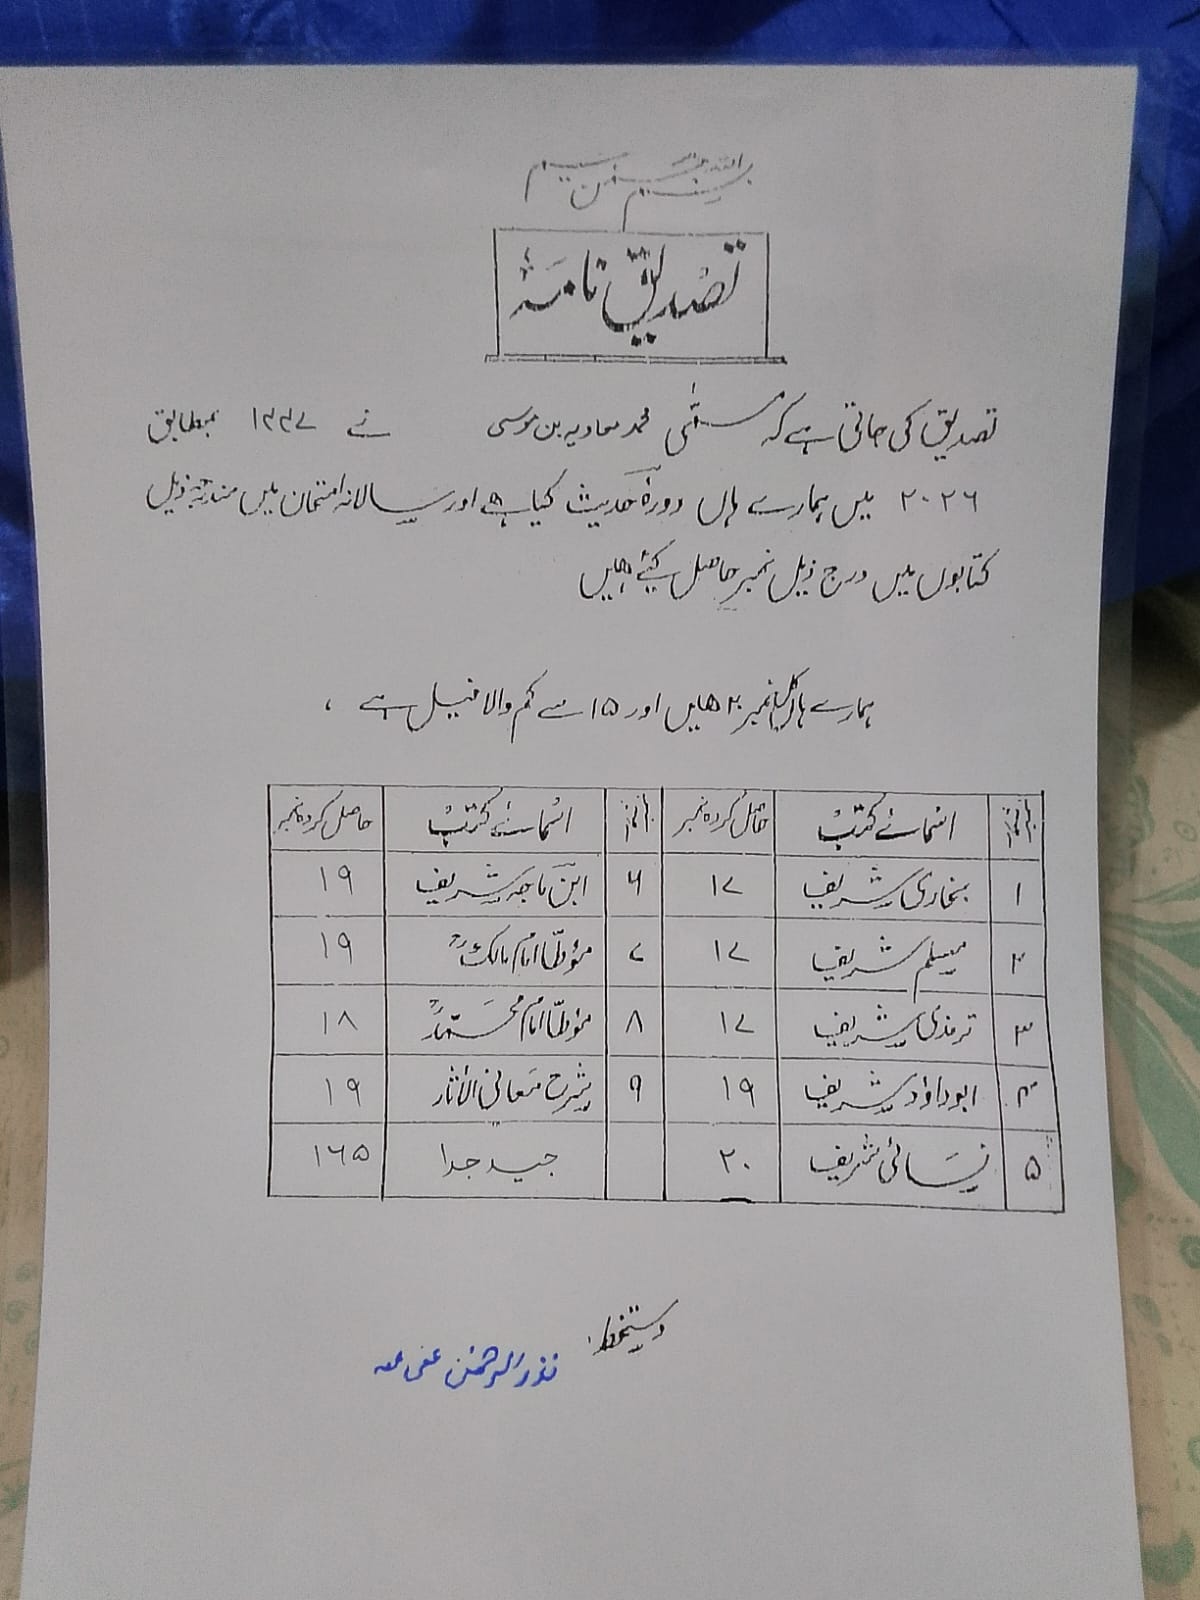 بسم اللہ الرحمن الرحیم
تصدیق نامہ
تصدیق کی جاتی ہے کہ مسمّٰی محمد معاویہ بن موسی نے ۱۴۴۷ بمطابق
۲۰۲۶ میں ہمارے ہاں دورۂ حدیث کیا ہے اور سالانہ امتحان میں مندرجہ ذیل
کتابوں میں درج ذیل نمبر حاصل کیئے ہیں
ہمارے ہاں کل نمبر ۲۰ ہیں اور ۱۵ سے کم والا فیل ہے ،
اسمائے کتب حاصل کردہ نمبر اسمائے کتب حاصل کردہ نمبر
۱ بخاری شریف ۱۷ ۶ ابن ماجہ شریف ۱۹
۲ مسلم شریف ۱۷ ۷ مؤطّا امام مالکؒ ۱۹
۳ ترمذی شریف ۱۷ ۸ مؤطّا امام محمدؒ ۱۸
۴ ابو داؤد شریف ۱۹ ۹ شرح معانی الاثار ۱۹
۵ نسائی شریف ۲۰ جید جدا ۱۶۵
دستخط:
نذر الرحمٰن عفی عنہ